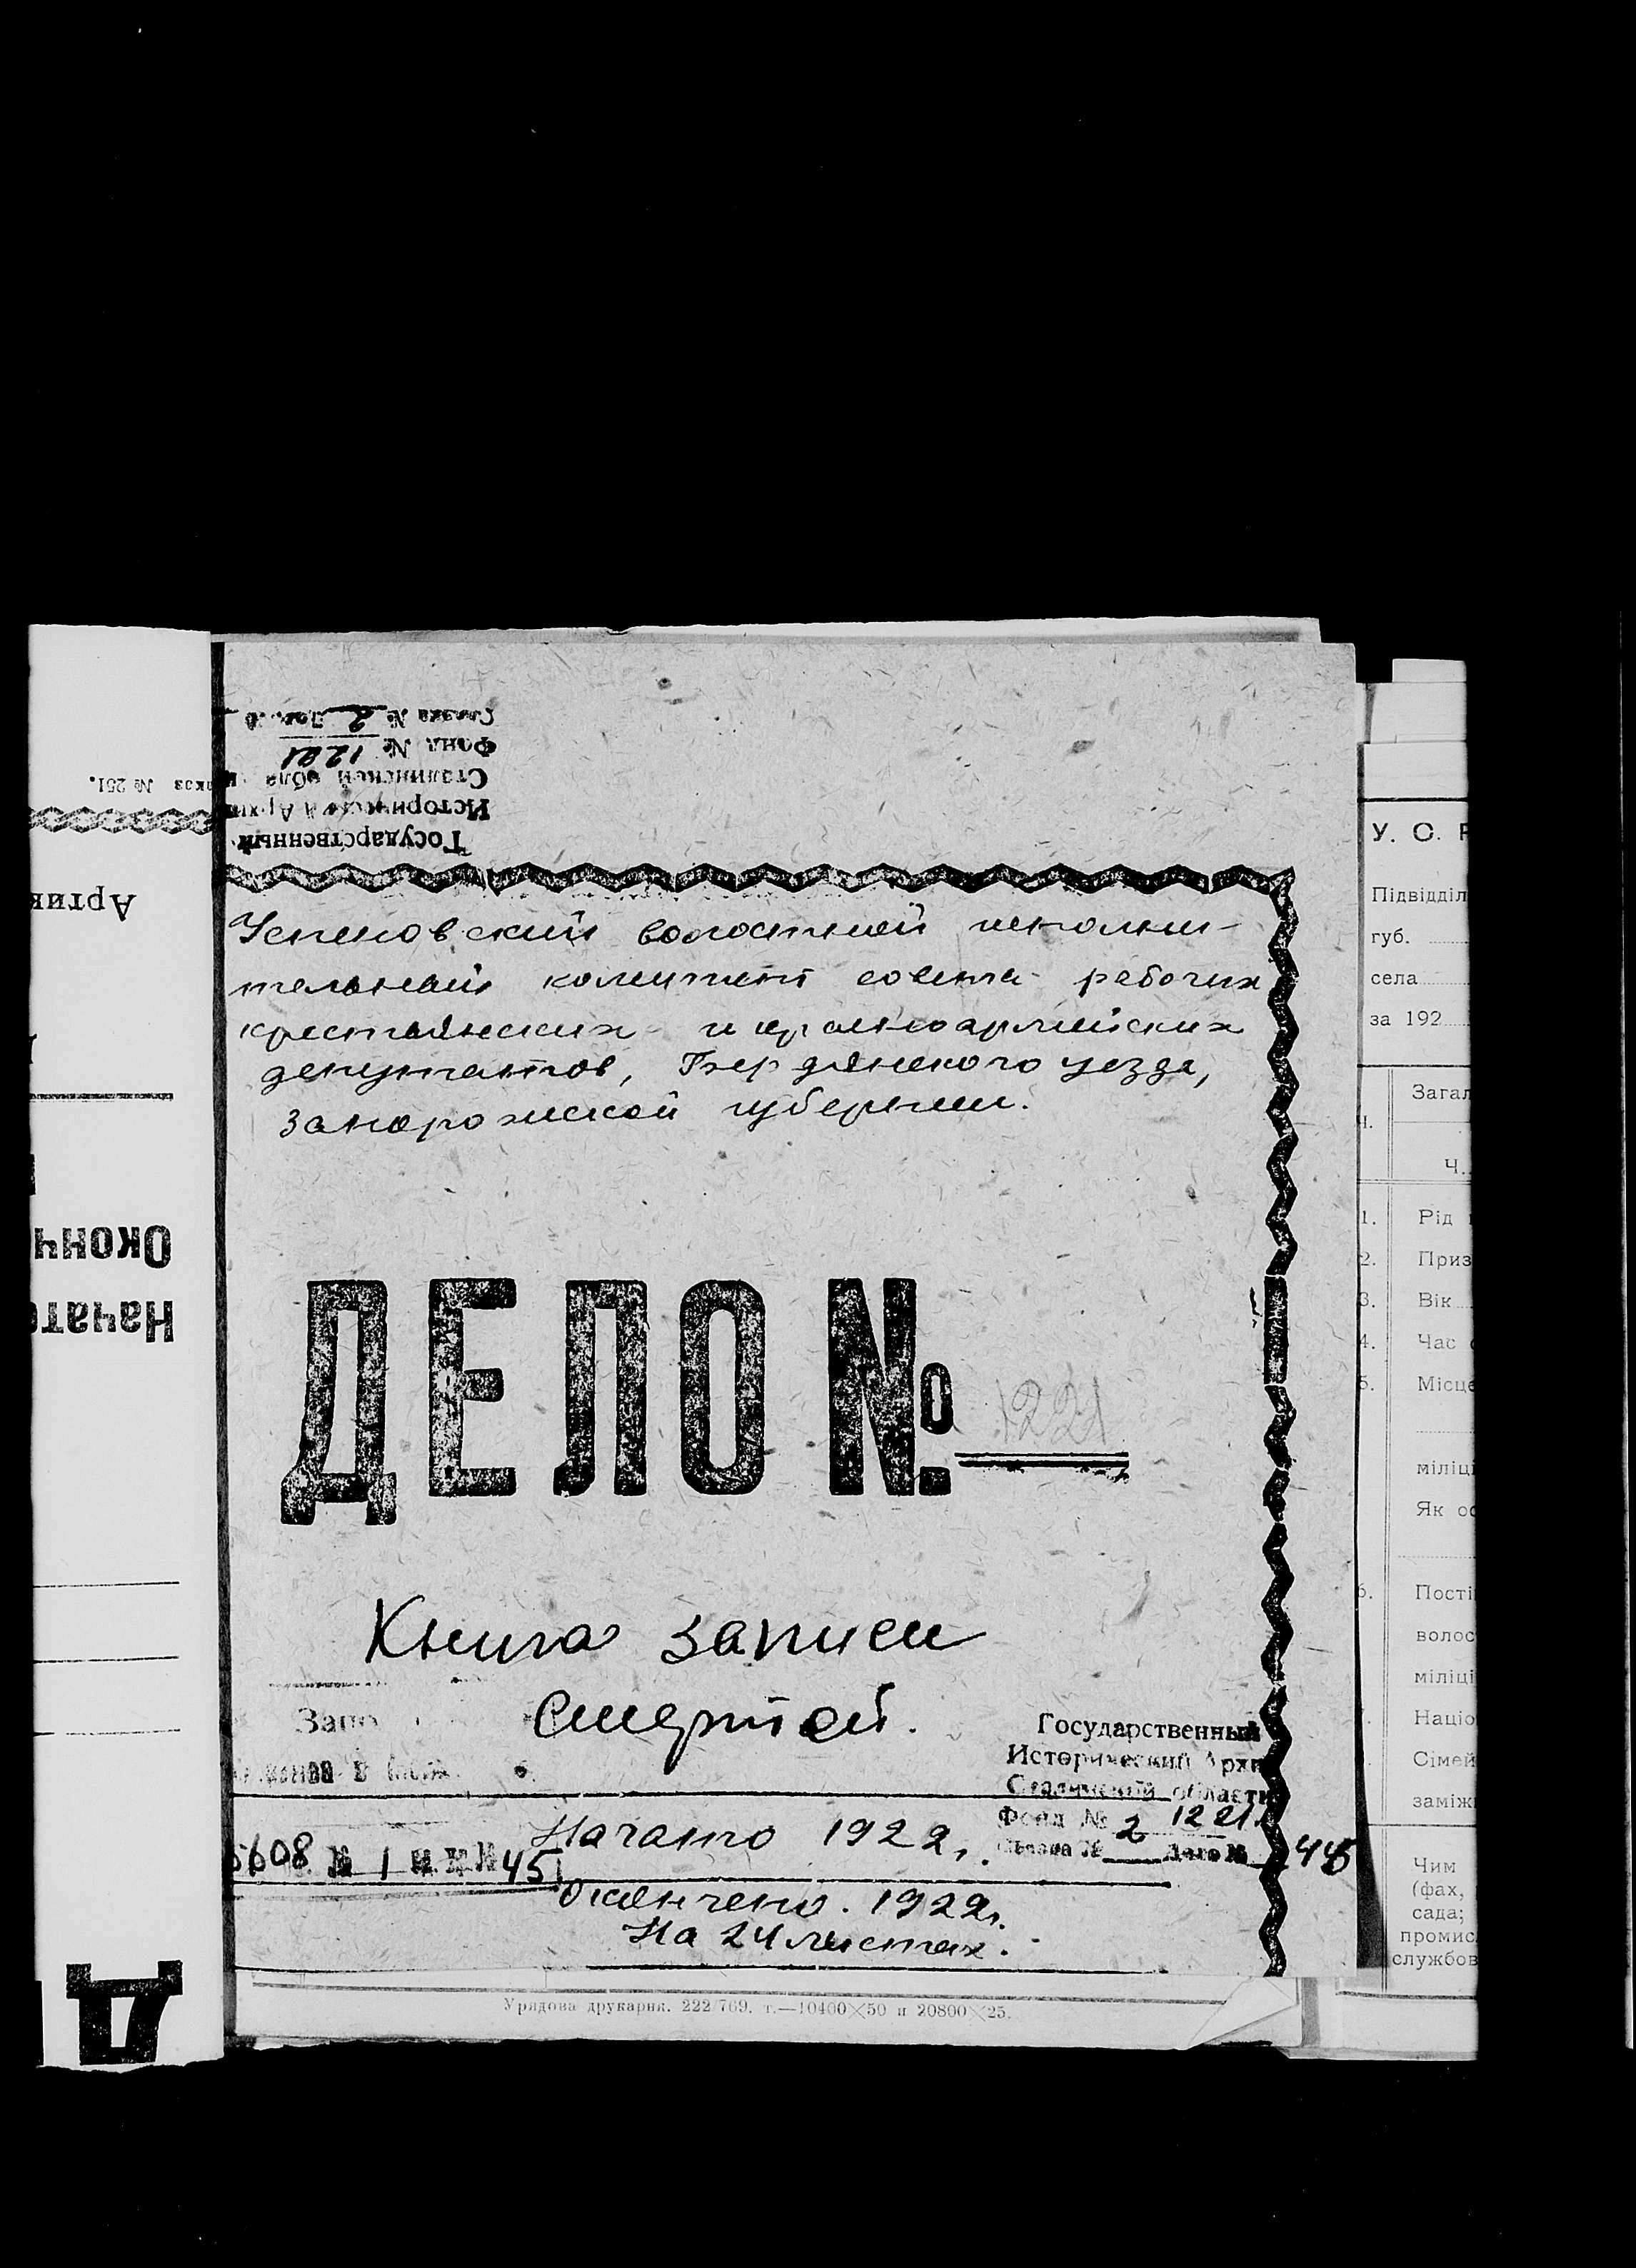 Государственный
Исторический Архив
Сталинской обла
Фонд № 1221
Связка № 2
заказ № 251.
Артик
Оконч
Начато
Успеновский волостной исполни-
тельный комитет совета рабочих
крестьянских и красноармейских
депутатов, Бердянского уезда,
Запорожской губернии.
ДЕЛО № 1221
Книга записи
смертей.
Запо
Государственный
Исторический Архи
Сталинской области
Фонд № 1221
Связка № 2 Дело № 445
5608 № 1 45
Начато 1922г.
Окончено. 1922г.
На 24 листах.
Урядова друкарня. 222/769. т.—10400×50 и 20800×25.
У. С. Р
Підвідділ
губ.
села
за 192
Загал
Ч.
1. Рід
2. Приз
3. Вік
4. Час
5. Місце
міліці
Як ос
6. Пості
волос
міліці
Націо
Сімей
заміж
Чим
(фах,
сада;
промис
службов